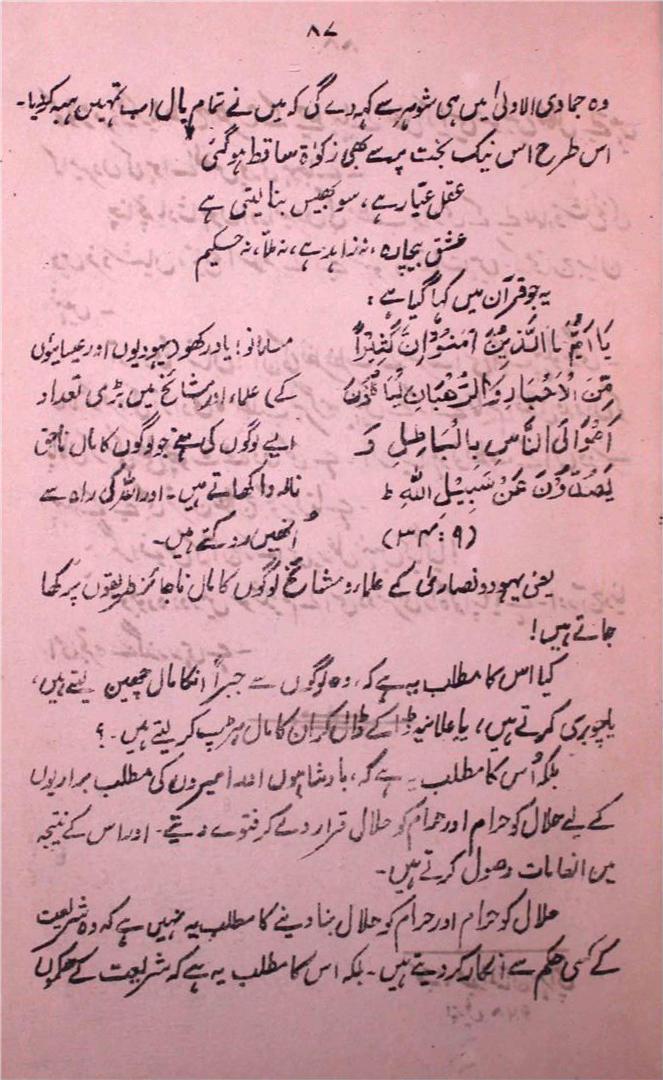 ۸۷
وہ جمادی الاولیٰ میں ہی شوہر سے کہہ دے گی کہ میں نے تمام مال اب تمہیں ہبہ کر دیا۔
اس طرح اس نیک بخت پر سے بھی زکوٰۃ ساقط ہو گئی
عقل عیّار ہے، سو بھیس بنا لیتی ہے
عشق بیچارہ، نہ زاہد ہے، نہ ملّا، نہ حکیم
یہ جو قرآن میں کہا گیا ہے:
یَا اَیُّھَا الَّذِیْنَ اٰمَنُوْا اِنَّ کَثِیْرًا
مِّنَ الْاَحْبَارِ وَالرُّھْبَانِ لَیَاْکُلُوْنَ
اَمْوَالَ النَّاسِ بِالْبَاطِلِ وَ
یَصُدُّوْنَ عَنْ سَبِیْلِ اللّٰہِ ط
(۹:۳۴)
مسلمانو! یاد رکھو (یہودیوں اور عیسائیوں
کے) علماء اور مشائخ میں بڑی تعداد
ایسے لوگوں کی ہے جو لوگوں کا مال ناحق
ناروا کھاتے ہیں۔ اور اللہ کی راہ سے
اُنھیں روکتے ہیں۔
یعنی یہود و نصاریٰ کے علماء و مشائخ لوگوں کا مال ناجائز طریقوں پر کھا
جاتے ہیں!
کیا اس کا مطلب یہ ہے کہ، وہ لوگوں سے جبراً انکا مال چھین لیتے ہیں،
یا چوری کرتے ہیں، یا علانیہ ڈاکے ڈال کر ان کا مال ہڑپ کر لیتے ہیں۔؟
بلکہ اُس کا مطلب یہ ہے کہ، بادشاہوں اور امیروں کی مطلب براریوں
کے لیے حلال کو حرام اور حرام کو حلال قرار دے کر فتوے دیتے۔ اور اس کے نتیجہ
میں انعامات وصول کرتے ہیں۔
حلال کو حرام اور حرام کو حلال بنا دینے کا مطلب یہ نہیں ہے کہ وہ شریعت
کے کسی حکم سے انکار کر دیتے ہیں۔ بلکہ اس کا مطلب یہ ہے کہ شریعت کے حکموں